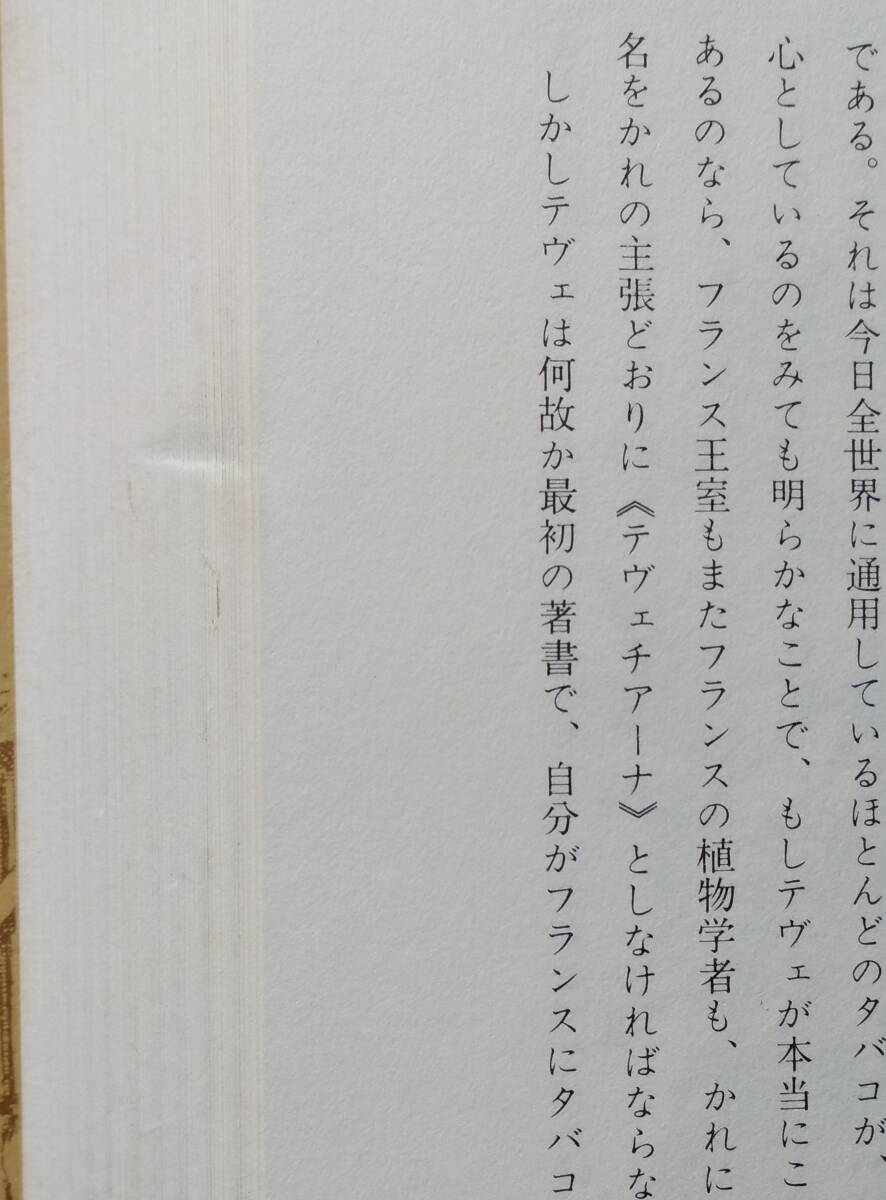 である。それは今日全世界に通用しているほとんどのタバコが、
心としているのをみても明らかなことで、もしテヴェが本当にこ
あるのなら、フランス王室もまたフランスの植物学者も、かれに
名をかれの主張どおりに《テヴェチアーナ》としなければならな
しかしテヴェは何故か最初の著書で、自分がフランスにタバコ